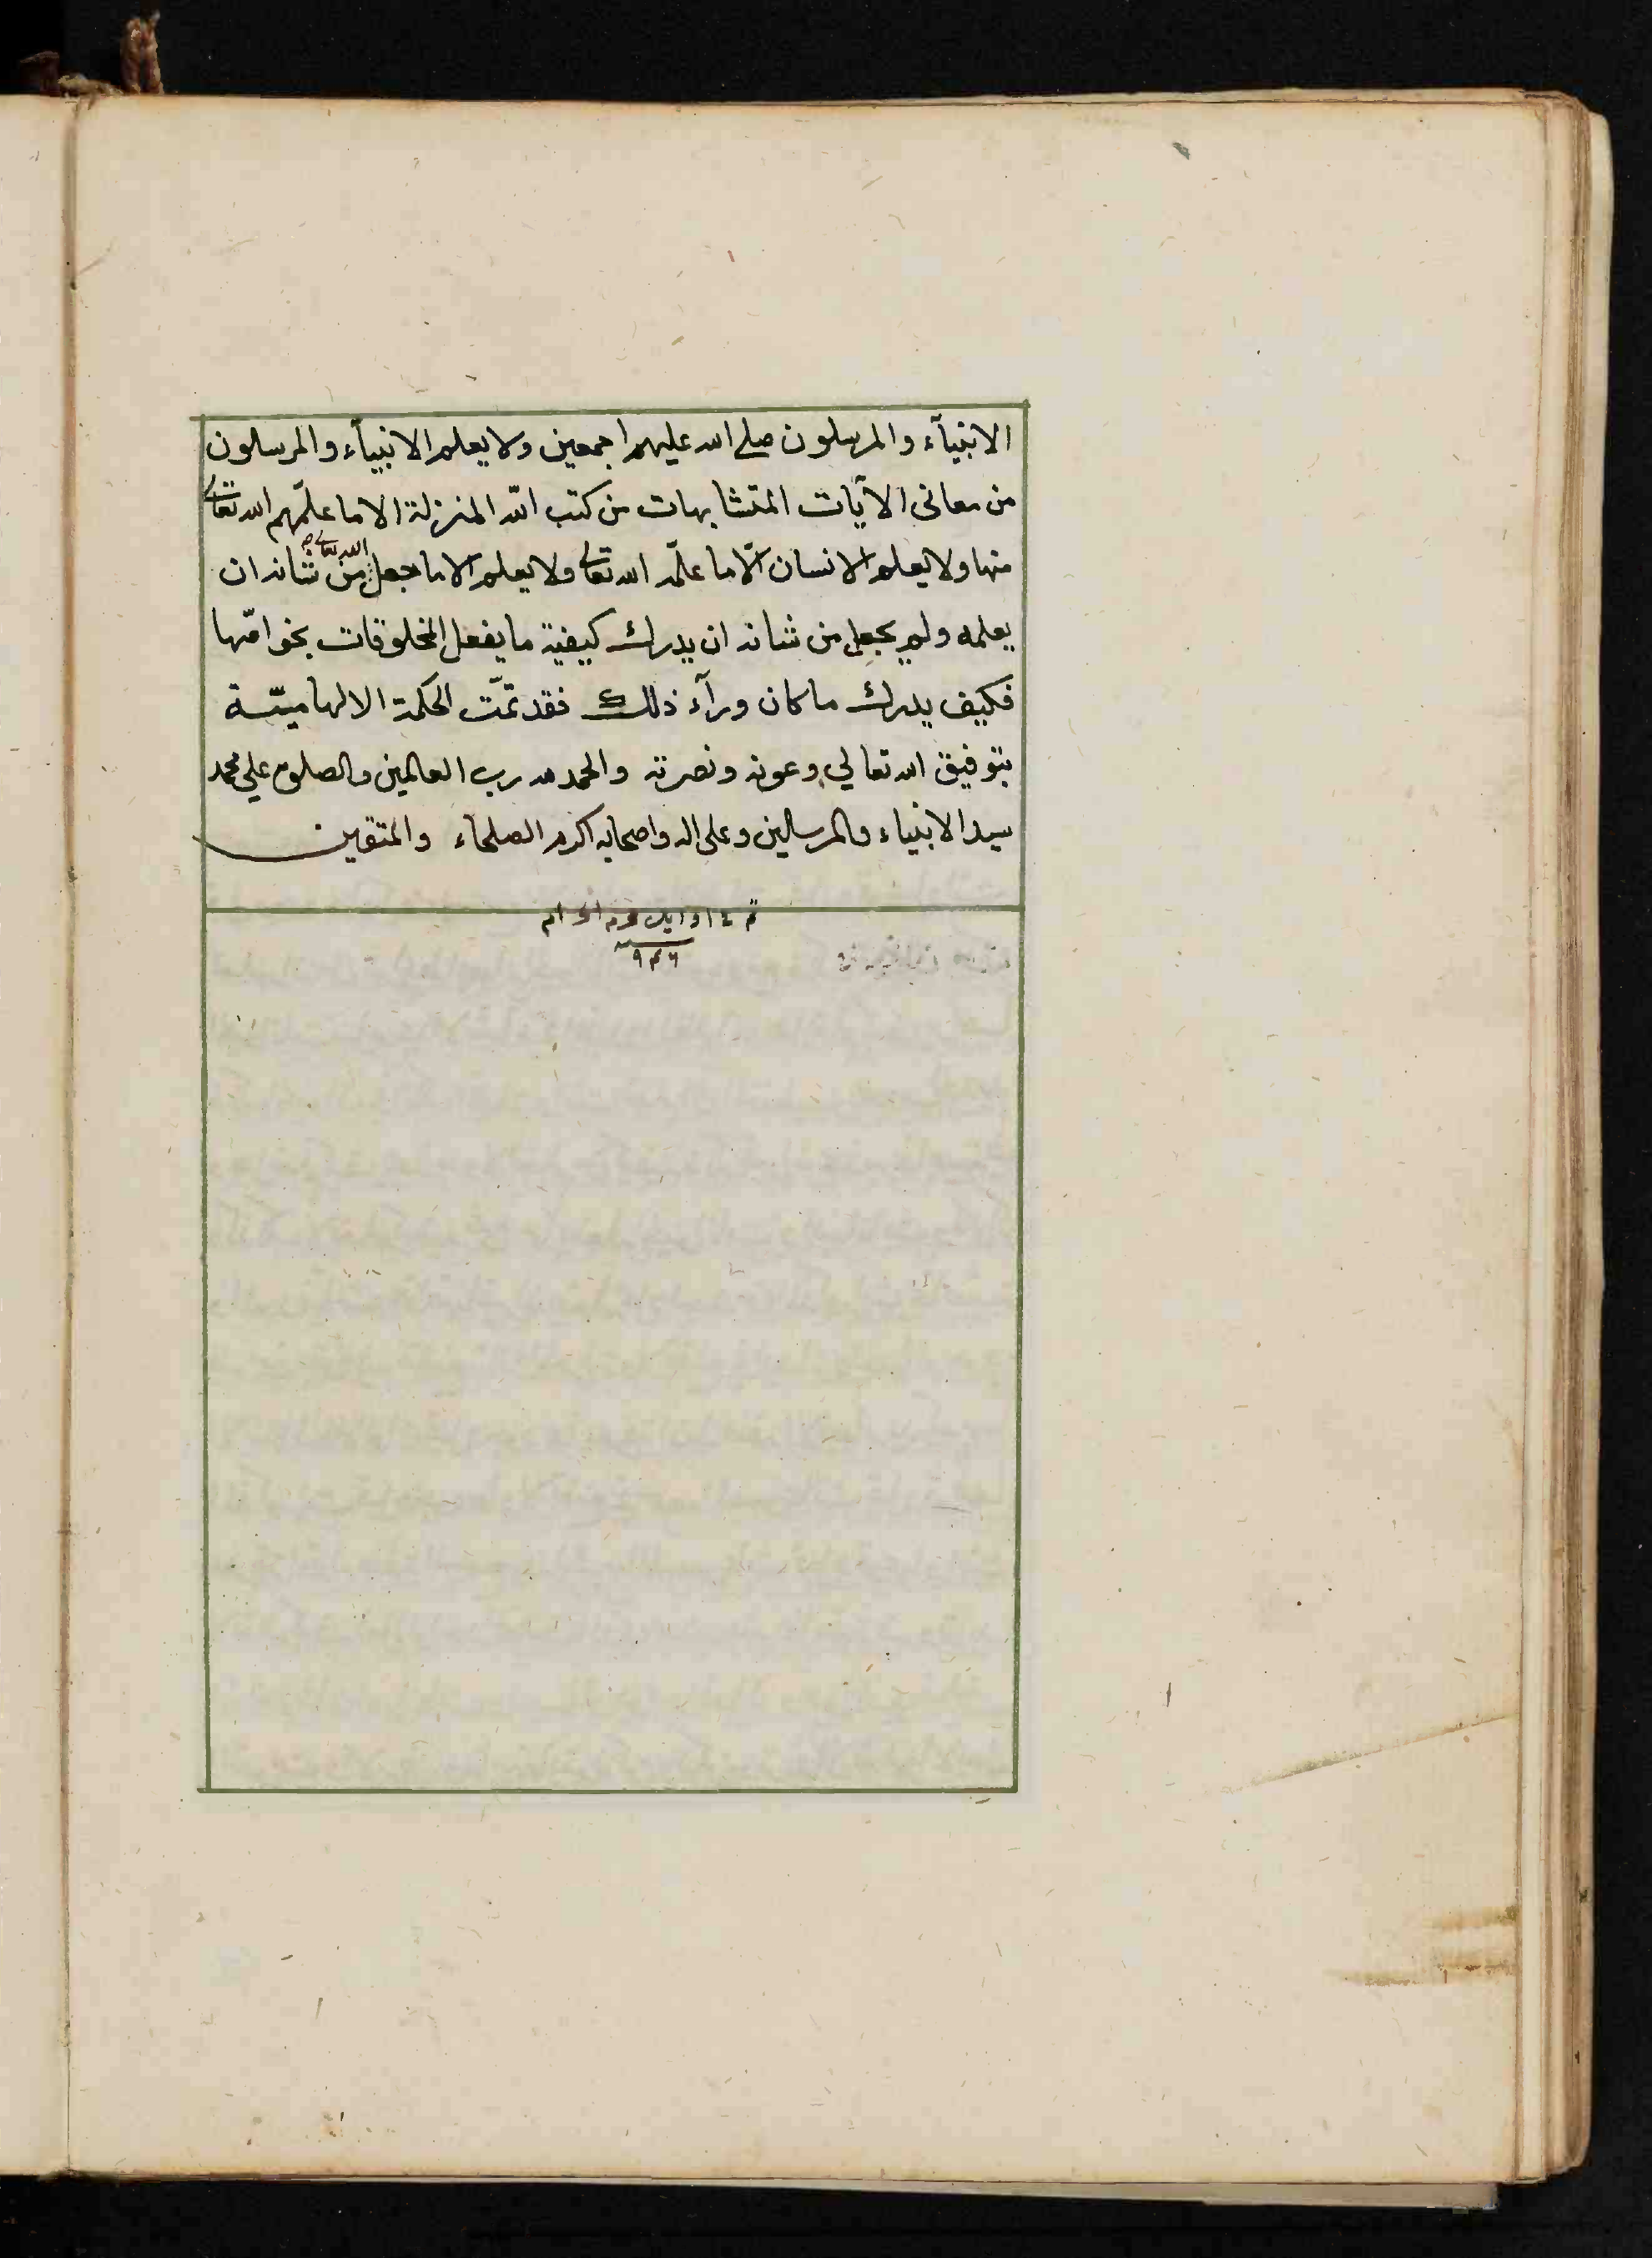 الانبيآء والمرسلون صلے الله عليهم اجمعين ولا يعلم الانبيآء والمرسلون
من معانى الآيات المتشابهات من كتب الله المنزلة الا ما علّمهم الله تعالے
منها ولا يعلم الانسان الّا ما علّمه الله تعالے ولا يعلم الا ما جعل الله تعالے من شانه ان
يعلمه ولم يجعل من شانه ان يدرك كيفية ما يفعل المخلوقات بخواصّها
فكيف يدرك ما كان ورآء ذلك فقد تمّت الحكمة الالهاميّة
بتوفيق الله تعالي وعونه ونصرته والحمد لله رب العالمين والصلوة علي محمد
سيد الانبياء والمرسلين وعلى اله واصحابه اكرم الصلحاء والمتقين
تم ٤ اوايل محرم الحرام